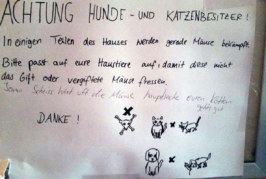 ACHTUNG HUNDE- UND KATZENBESITZER!
In einigen Teilen des Hauses werden gerade Mäuse bekämpft.
Bitte passt auf eure Haustiere auf, damit diese nicht
das Gift oder vergiftete Mäuse fressen.
DANKE!